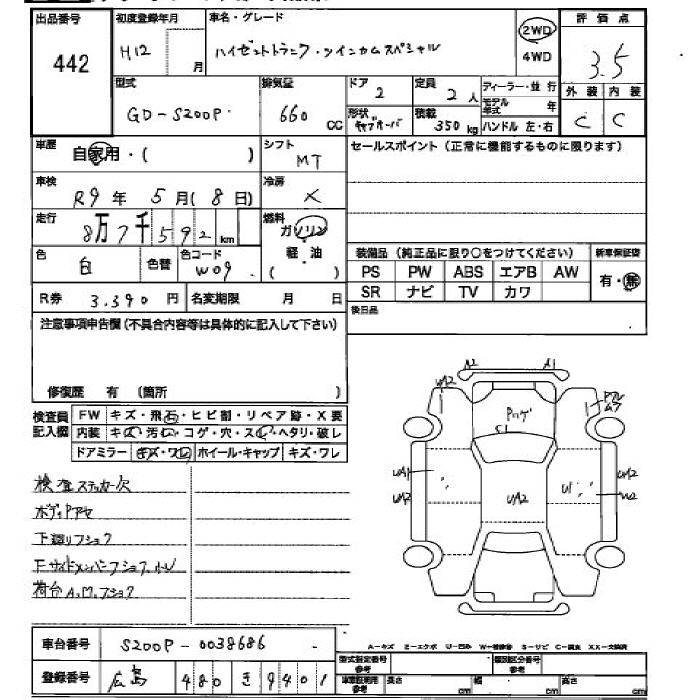 出品番号 初度登録年月 車名・グレード 評価点
442 H12 月 ハイゼットトラック・ツインカムスペシャル 2WD 4WD 3.5
型式 排気量 ドア 定員 ディーラー・並 行 外装 内装
GD-S200P 660 CC 2 2人 モデル年式 年 C C
形状 キャブオーバ 積載 350kg ハンドル 左・右
車歴 自家用・( ) シフト MT セールスポイント(正常に機能するものに限ります)
車検 R9年 5月(8日) 冷房 X
走行 8万7千592km 燃料 ガソリン 軽・油 ( )
色 白 色替 色コード W09 装備品(純正品に限り○をつけてください) 新車保証書
PS PW ABS エアB AW 有・無
SR ナビ TV カワ
R券 3.390円 名変期限 月 日 後日品
注意事項申告欄(不具合内容等は具体的に記入して下さい)
修復歴 有 (箇所 )
検査員記入欄 FW キズ・飛石・ヒビ割・リペア跡・X要
内装 キズ・汚れ・コゲ・穴・スレ・ヘタリ・破レ
ドアミラー キズ・ワレ ホイール・キャップ キズ・ワレ
A2 A1
UA2
Pハゲ
C1
UA1 UA2 UA2 U1 UA2
検査ステッカー欠
ボディPアセ
下廻りフショク
Fサイドメンバーフショク小U
荷台A.M.フショク
車台番号 S200P-0038686
A-キズ E-エクボ U-凹み W-補修跡 S-サビ C-腐食 XX-交換済
登録番号 広島 480 き 9401 型式指定番号 参考 類別区分番号
車庫証明用 参考 長さ cm 幅 cm 高さ cm